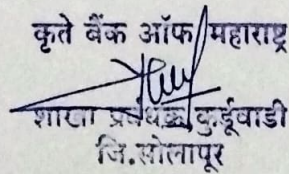 कृते बैंक ऑफ महाराष्ट्र
शाखा प्रबंधक कुर्डूवाडी
जि.सोलापूर